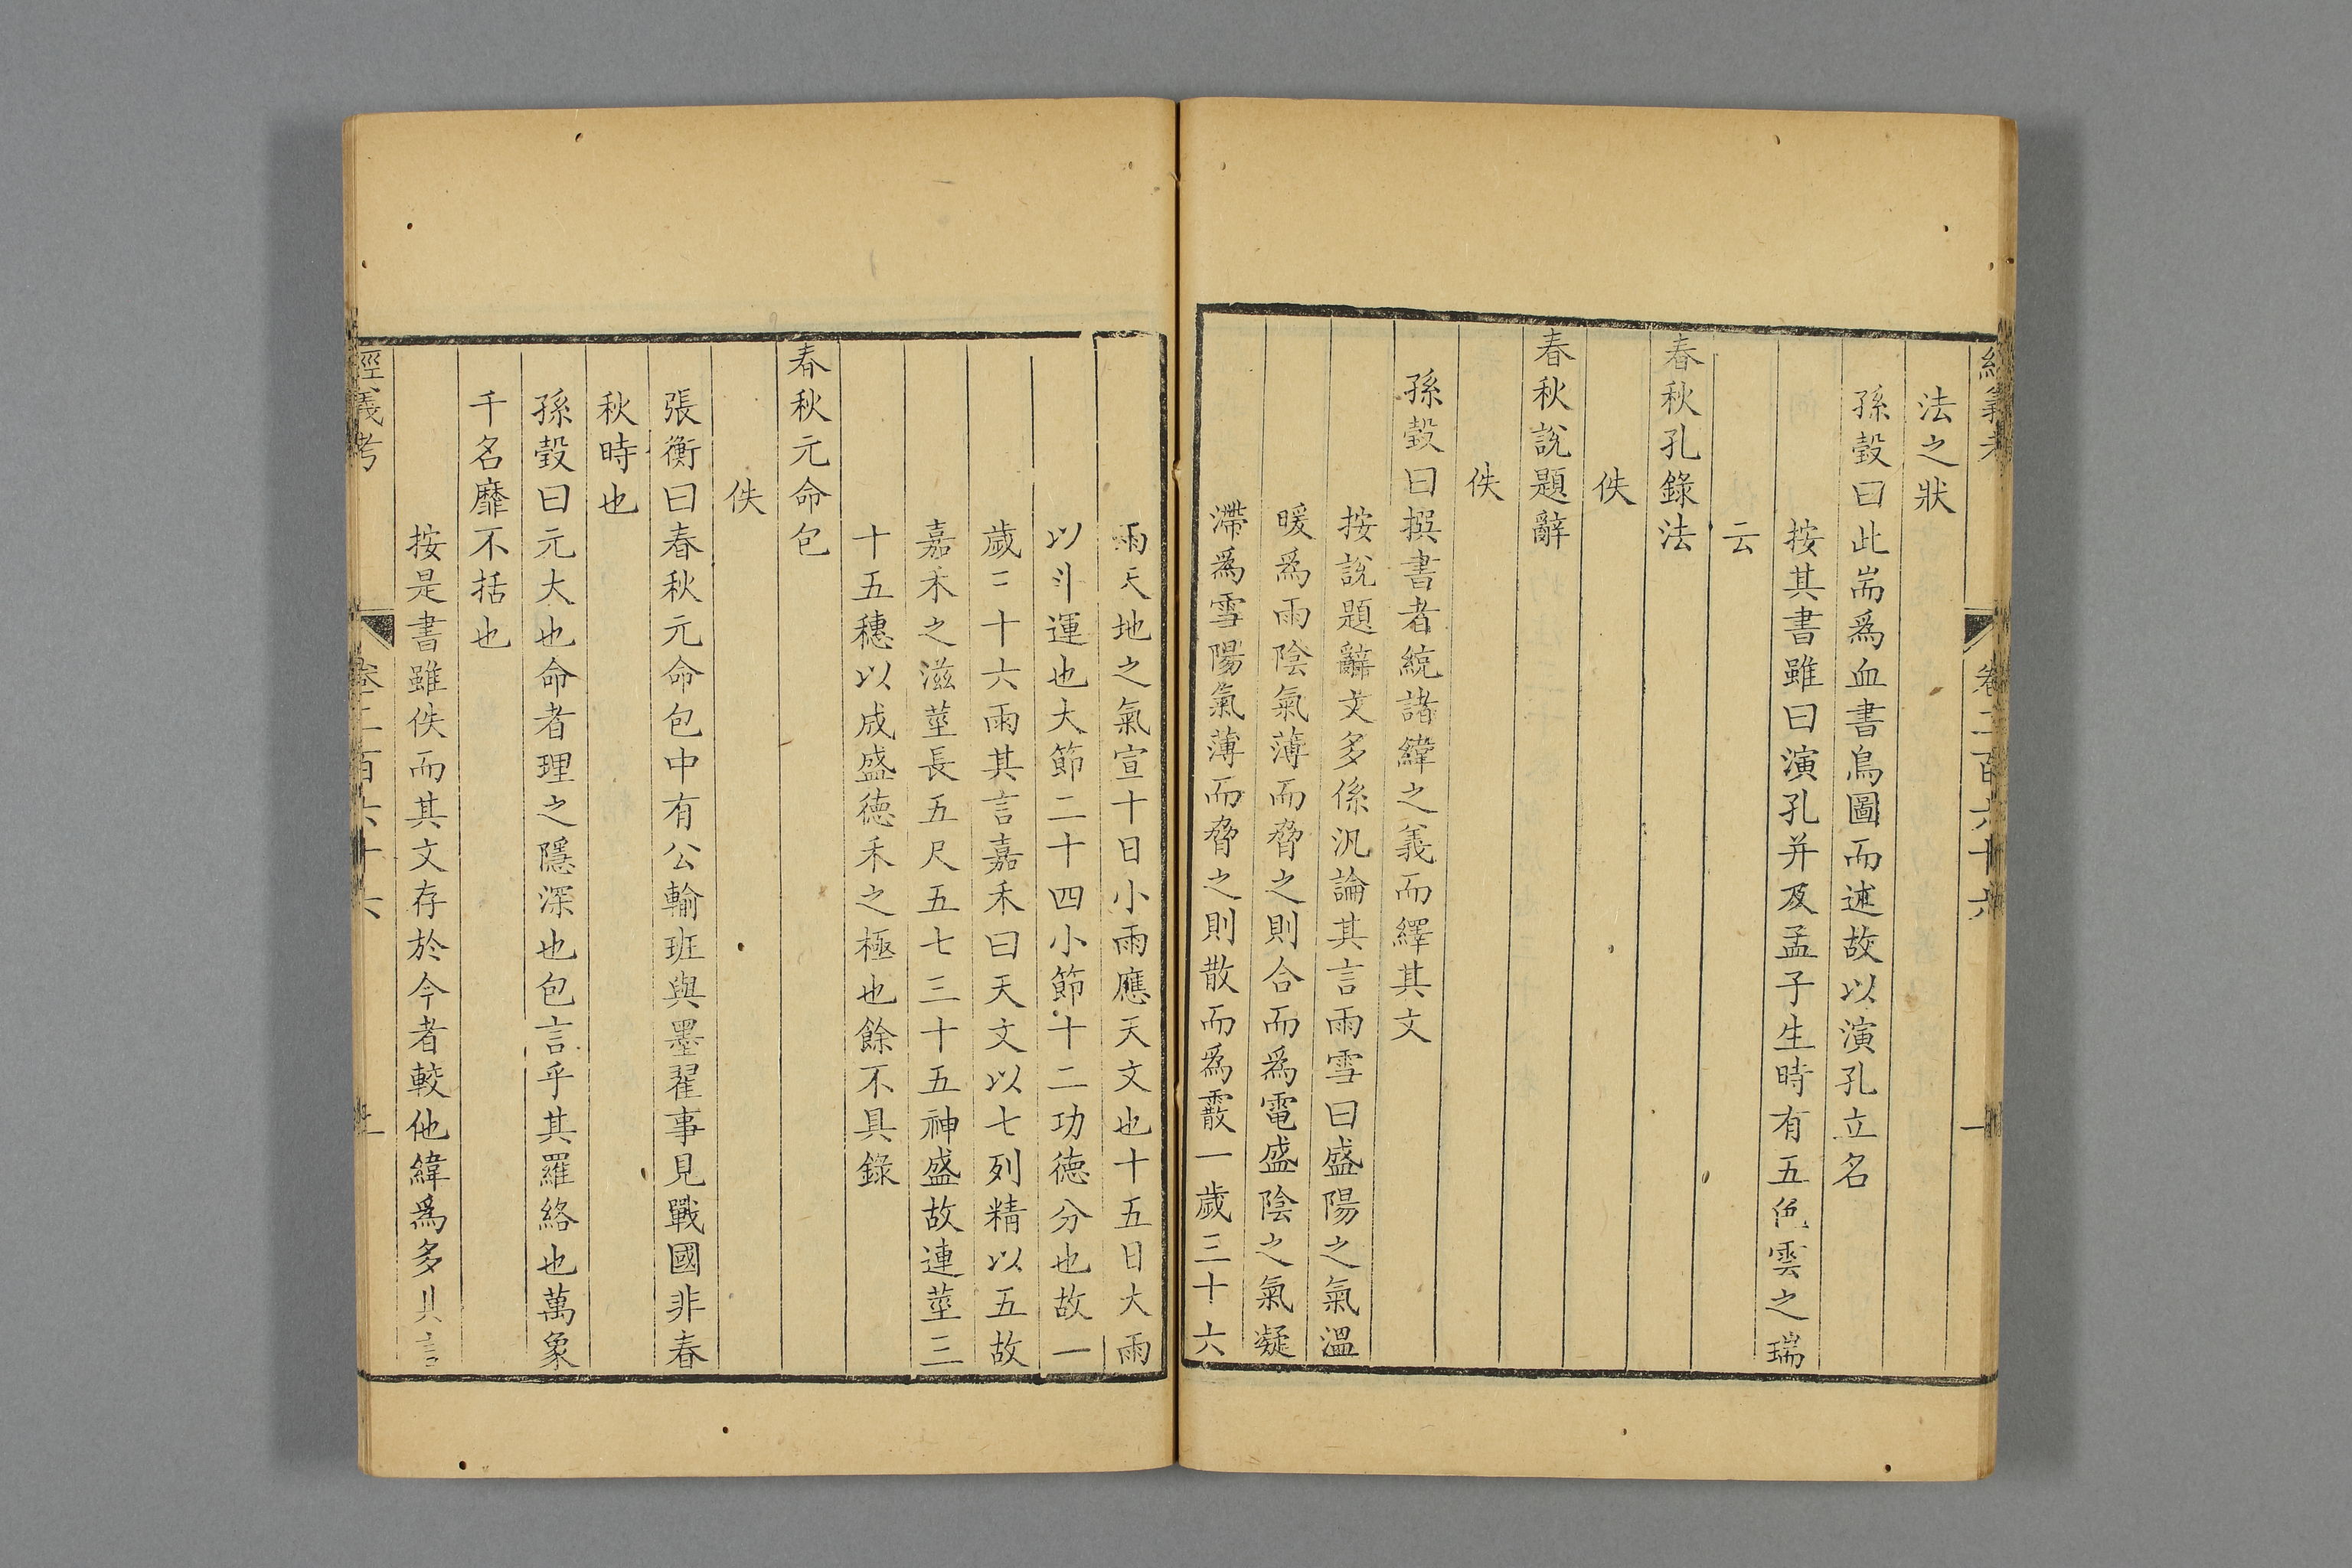 經義考 卷二百六十六
法之狀
孫瑴曰此耑為血書鳥圖而述故以演孔立名
按其書雖曰演孔并及孟子生時有五色雲之瑞
云
春秋孔錄法
佚
春秋說題辭
佚
孫瑴曰撰書者統諸緯之義而繹其文
按說題辭文多係汎論其言雨雪曰盛陽之氣溫
暖爲雨陰氣薄而脅之則合而爲電盛陰之氣凝
滯爲雪陽氣薄而脅之則散而爲霰一歲三十六
雨天地之氣宣十日小雨應天文也十五日大雨
以斗運也大節二十四小節十二功德分也故一
歲三十六雨其言嘉禾曰天文以七列精以五故
嘉禾之滋莖長五尺五七三十五神盛故連莖三
十五穗以成盛德禾之極也餘不具錄
春秋元命包
佚
張衡曰春秋元命包中有公輸班與墨翟事見戰國非春
秋時也
孫瑴曰元大也命者理之隱深也包言乎其羅絡也萬象
千名靡不括也
按是書雖佚而其文存於今者較他緯爲多其言
經義考 卷二百六十六